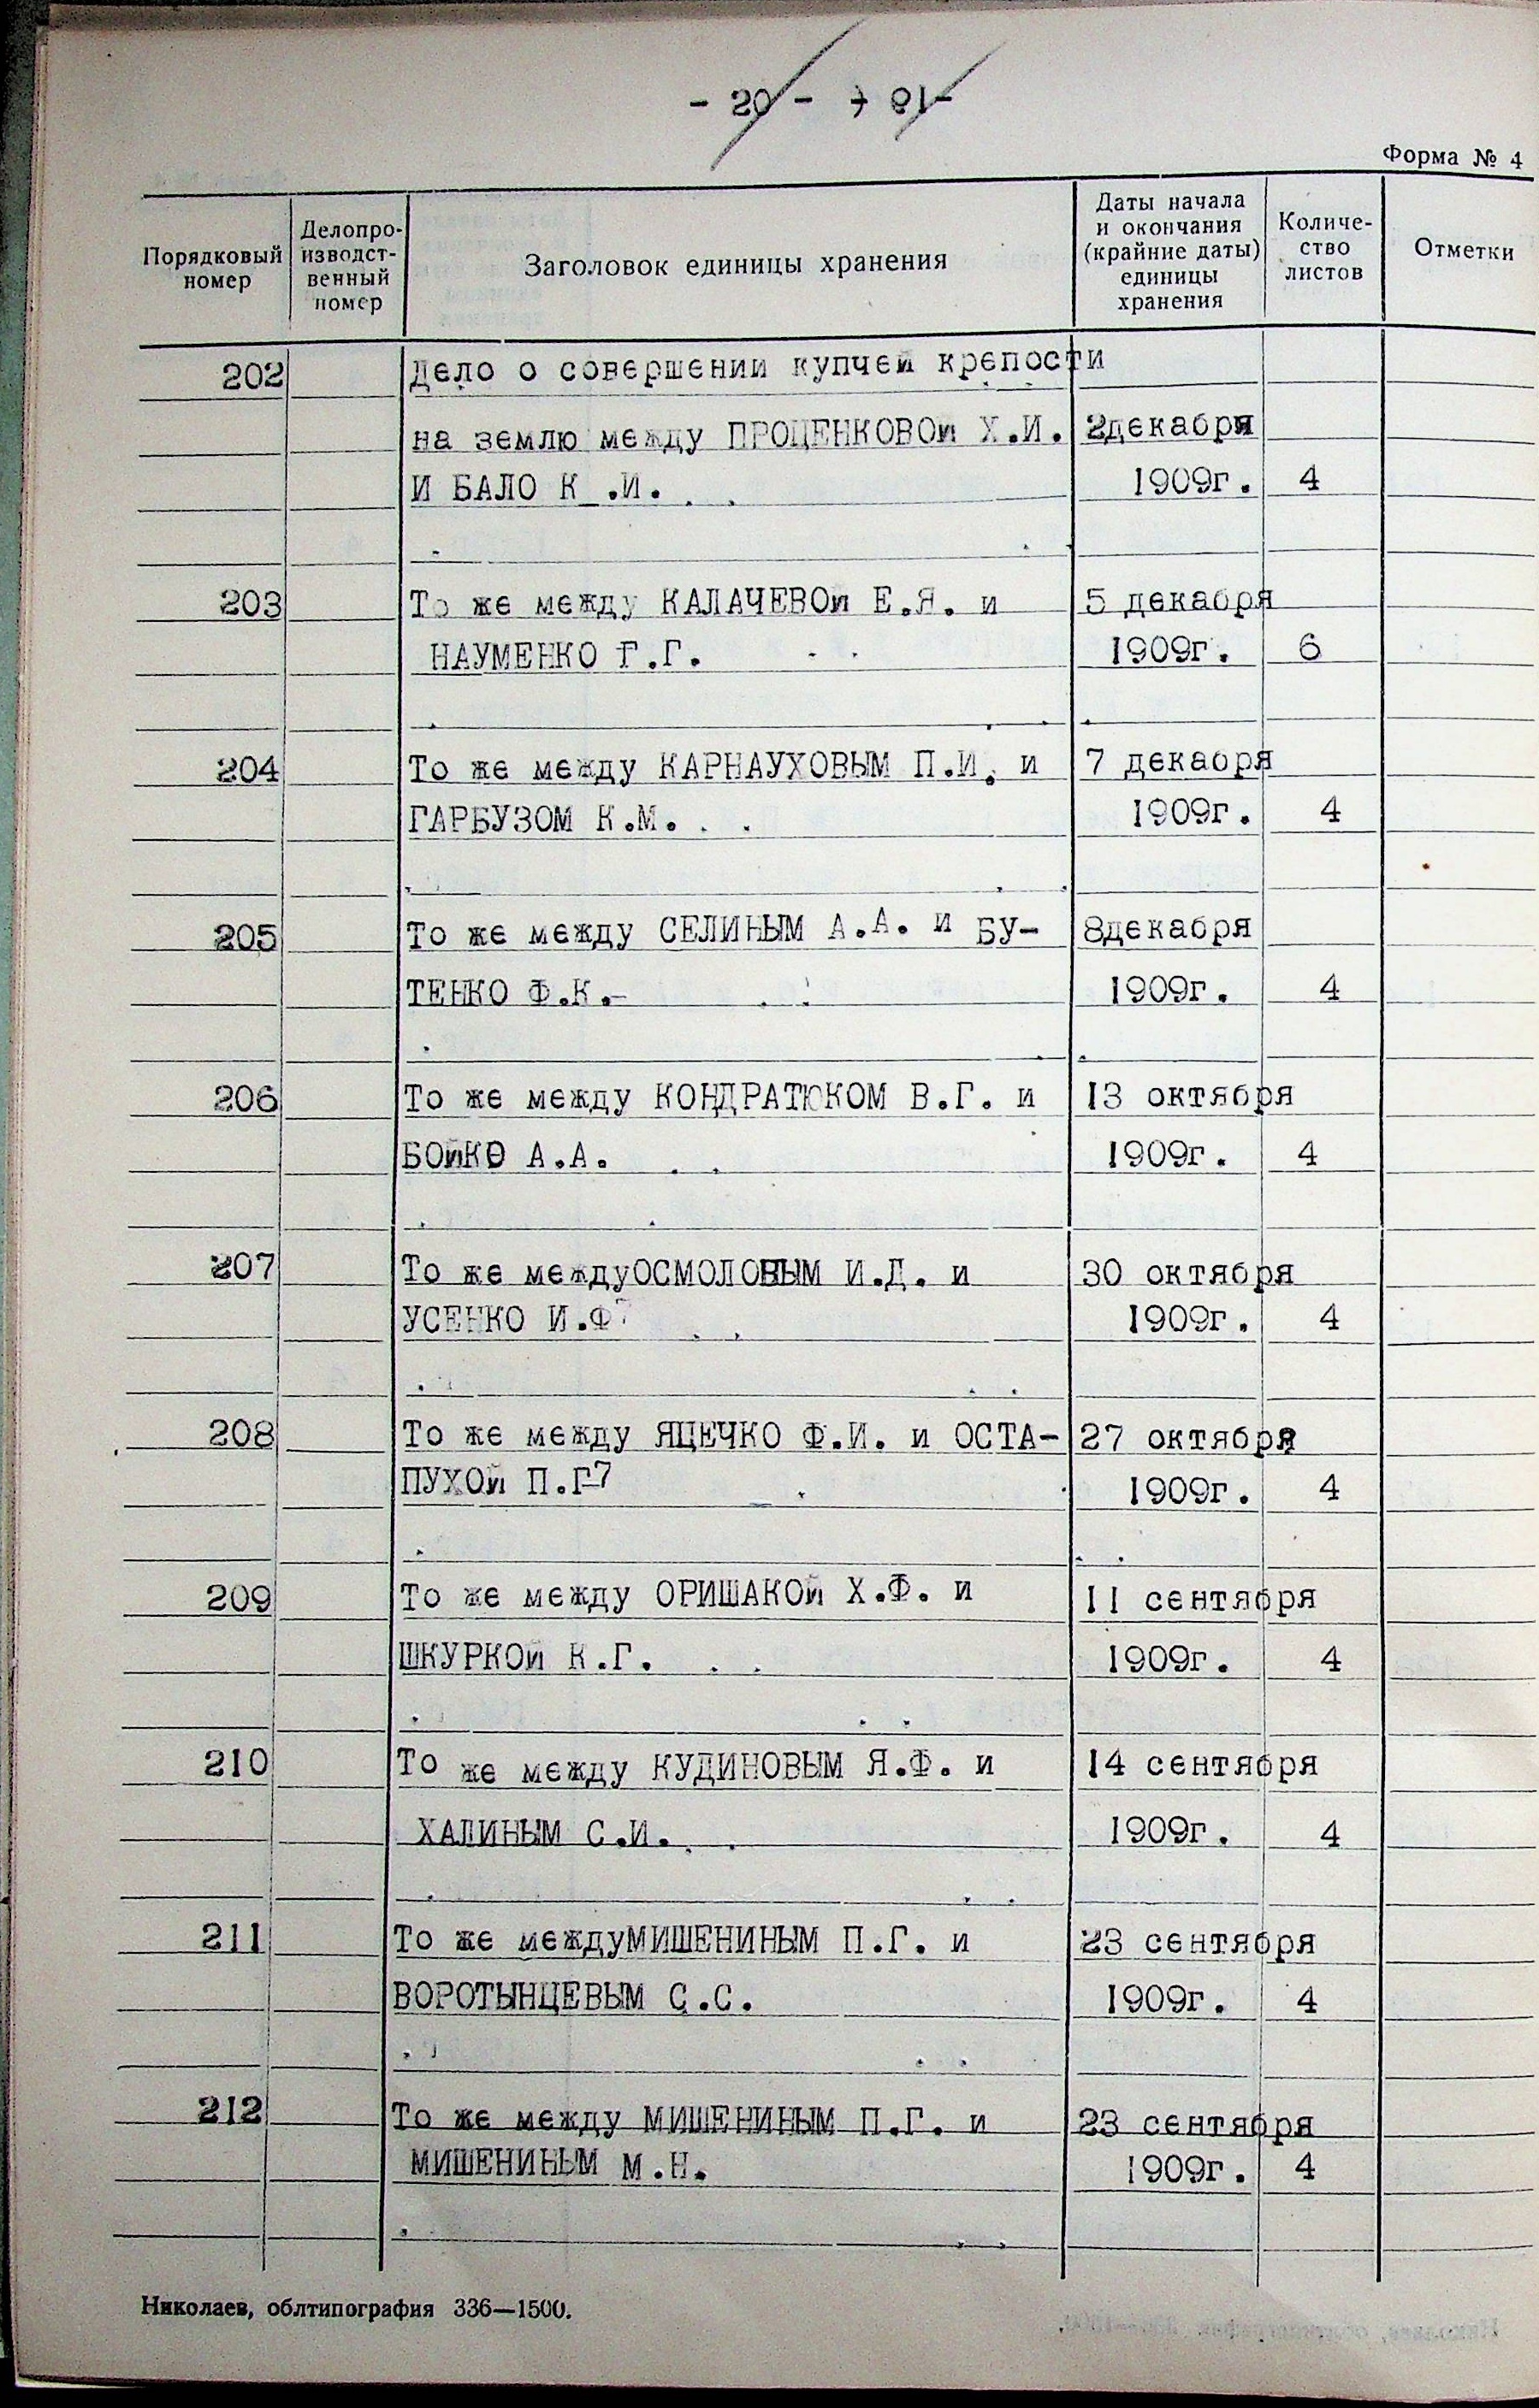 - 20 -
Форма № 4
Порядковый номер
Делопро-
изводст-
венный
номер
Заголовок единицы хранения
Даты начала
и окончания
(крайние даты)
единицы
хранения
Количе-
ство
листов
Отметки
202 Дело о совершении купчей крепости
на землю между ПРОЦЕНКОВОй Х.И. 2декабря
И БАЛО К .И. 1909г. 4
203 То же между КАЛАЧЕВОй Е.Я. и 5 декабря
НАУМЕНКО Г.Г. 1909г. 6
204 То же между КАРНАУХОВЫМ П.И. и 7 декабря
ГАРБУЗОМ К.М. 1909г. 4
205 То же между СЕЛИНЫМ А.А. и БУ- 8декабря
ТЕНКО Ф.К.- 1909г. 4
206 То же между КОНДРАТЮКОМ В.Г. и 13 октября
БОйКО А.А. 1909г. 4
207 То же междуОСМОЛОВЫМ И.Д. и 30 октября
УСЕНКО И.Ф7 1909г. 4
208 То же между ЯЦЕЧКО Ф.И. и ОСТА- 27 октября
ПУХОй П.Г7 1909г. 4
209 То же между ОРИШАКОй Х.Ф. и 11 сентября
ШКУРКОй К.Г. 1909г. 4
210 То же между КУДИНОВЫМ Я.Ф. и 14 сентября
ХАЛИНЫМ С.И. 1909г. 4
211 То же междуМИШЕНИНЫМ П.Г. и 23 сентября
ВОРОТЫНЦЕВЫМ С.С. 1909г. 4
212 То же между МИШЕНИНЫМ П.Г. и 23 сентября
МИШЕНИНЫМ М.Н. 1909г. 4
Николаев, облтипография 336—1500.